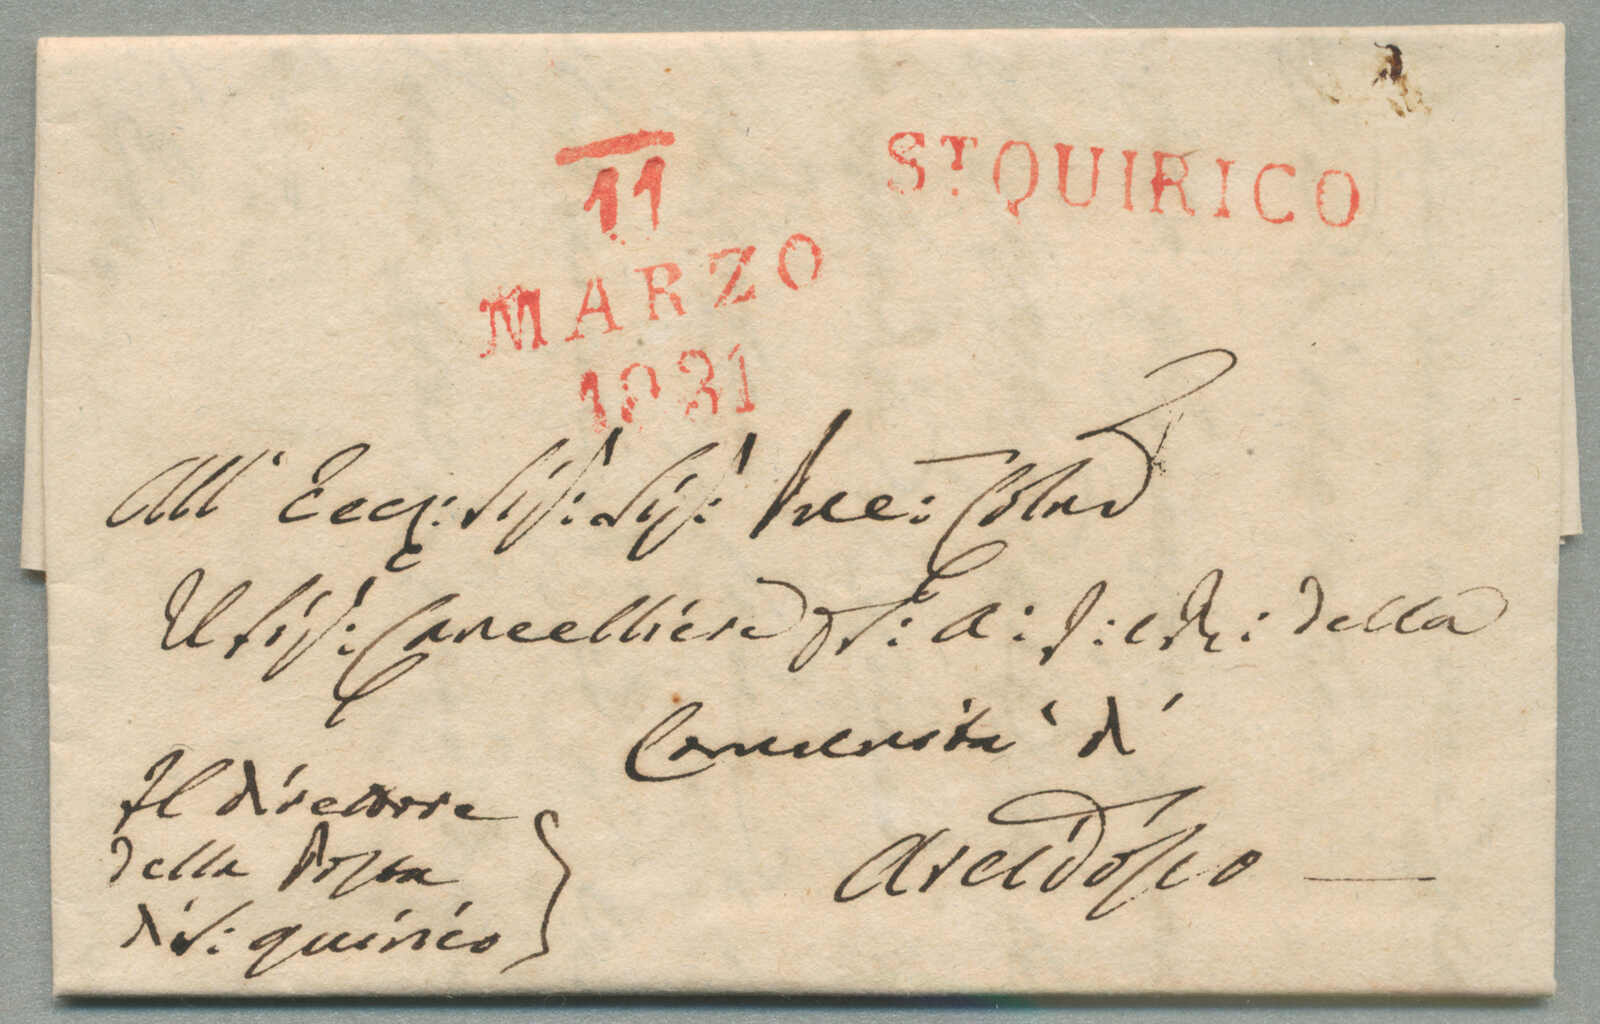 11
MARZO
1831
Sᵀ. QUIRICO
All' Ecc: Sig: Sig:
Il Sig: Cancelliere della
Comunità di
Arcidosso
Il direttore
della Posta
di S: quirico